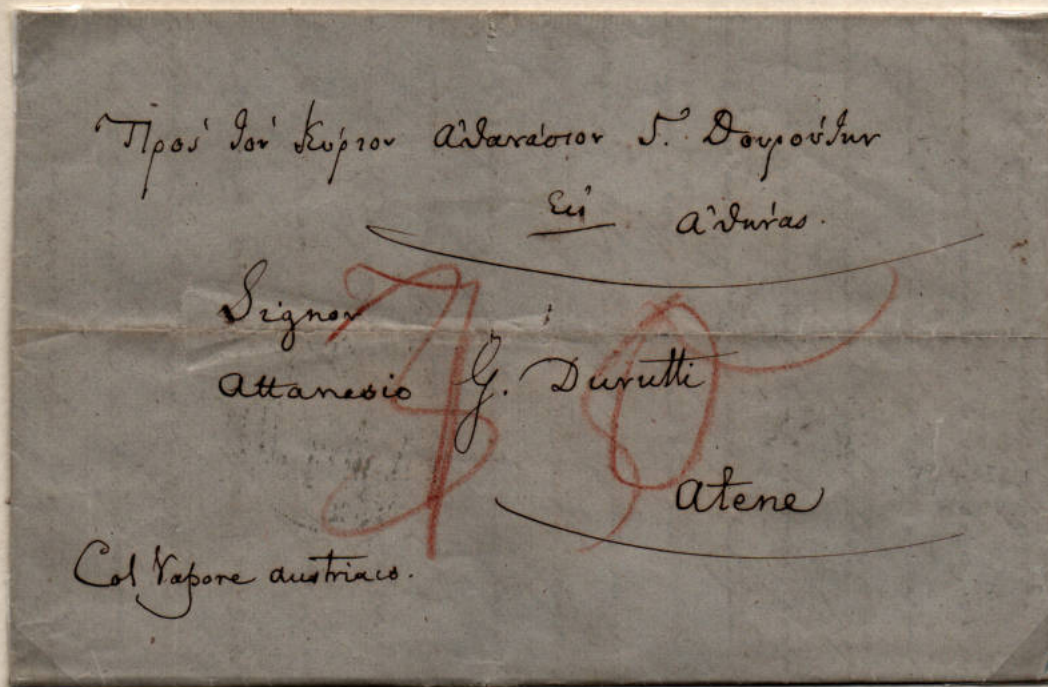 Πρὸς τὸν Κύριον Ἀθανάσιον Γ. Δουρούτην
Εἰς Ἀθήνας.
Signor
Attanasio G. Durutti
Atene
Col Vapore austriaco.